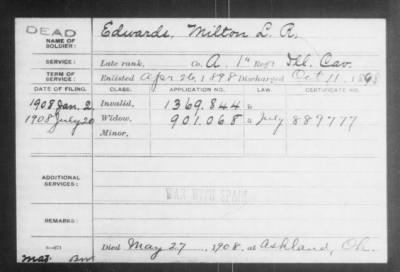 DEAD
NAME OF SOLDIER: Edwards, Milton L. R.
SERVICE: Late rank, Co. A. 1" Reg't Ill. Cav.
TERM OF SERVICE: Enlisted Apr 26, 1898 Discharged Oct 11, 1898
DATE OF FILING. CLASS. APPLICATION NO. LAW. CERTIFICATE NO.
1908 Jan. 2 Invalid, 1369.844
1908 July 20 Widow, 901.068 July 889777
Minor,
ADDITIONAL SERVICES:
WAR WITH SPAIN
REMARKS:
Died May 27, 1908, at Ashland, Oh.